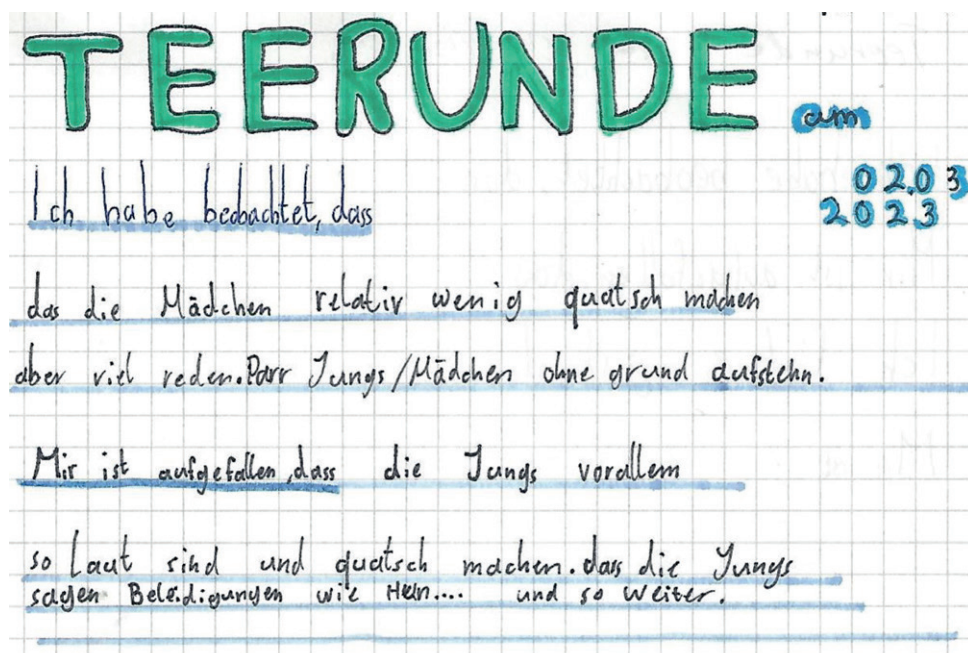 TEERUNDE
am
02.03
2023
Ich habe beobachtet, dass
das die Mädchen relativ wenig quatsch machen
aber viel reden. Parr Jungs/Mädchen ohne grund aufstehn.
Mir ist aufgefallen, dass die Jungs vorallem
so laut sind und quatsch machen. dass die Jungs
sagen Beleidigungen wie Hur.... und so weiter.